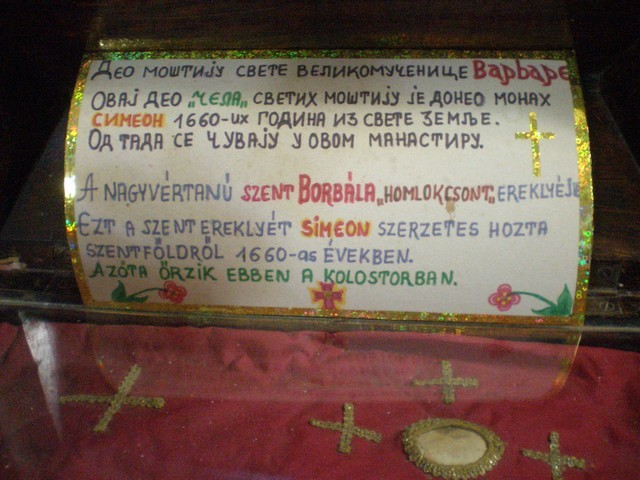 Део моштију свете великомученице Варваре
Овај део „чела„ светих моштију је донео монах
Симеон 1660-их година из свете земље.
Од тада се чувају у овом манастиру.
A NAGYVÉRTANÚ SZENT BORBÁLA „HOMLOKCSONT„ EREKLYÉJE
EZT A SZENT EREKLYÉT SIMEON SZERZETES HOZTA
SZENTFÖLDRŐL 1660-as ÉVEKBEN.
AZÓTA ŐRZIK EBBEN A KOLOSTORBAN.